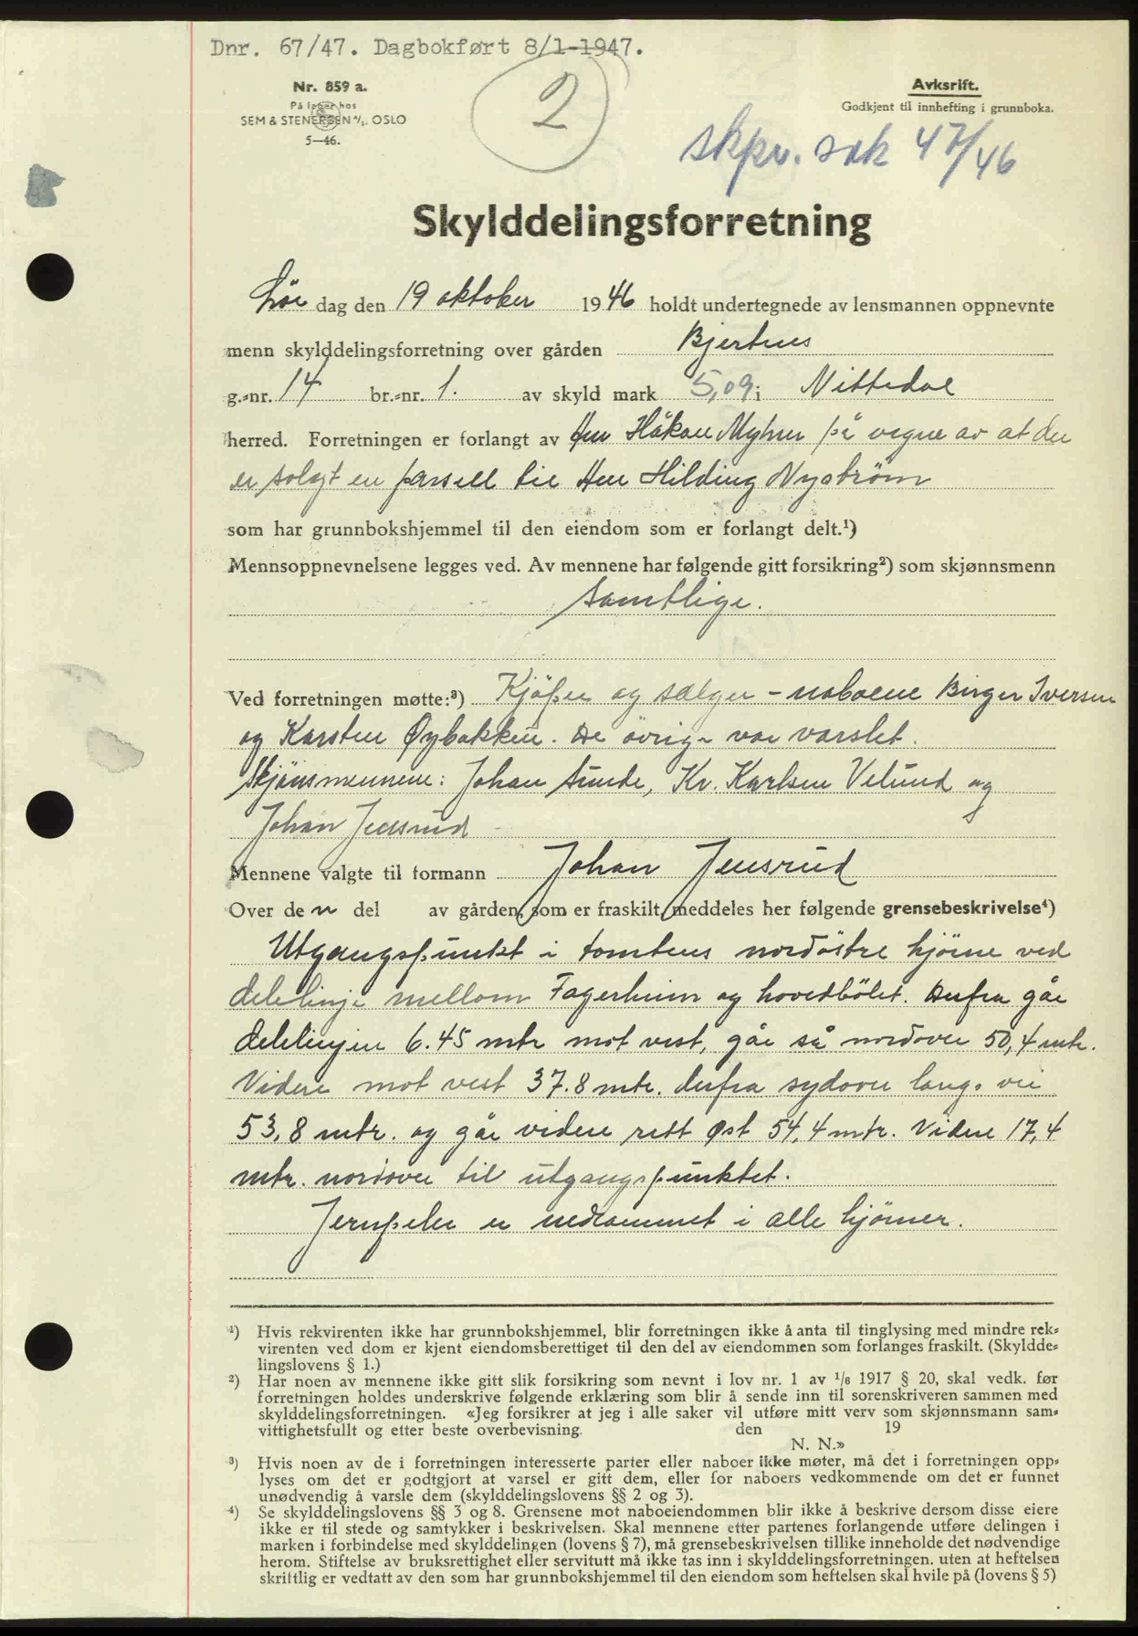 Dnr. 67/47. Dagbokført 8/1-1947.
Nr. 859 a.
På lager hos
SEM & STENERSEN A/S. OSLO
5—46.
2
Avksrift.
Godkjent til innhefting i grunnboka.
skpr. sak 47/46
Skylddelingsforretning
Lør dag den 19 oktober 1946 holdt undertegnede av lensmannen oppnevnte
menn skylddelingsforretning over gården Bjertnes
g.-nr. 14 br.-nr. 1. av skyld mark 5,09 i Nittedal
herred. Forretningen er forlangt av Herr Håkon Myhrer på vegne av at der
er solgt en parsell til Herr Hilding Nystrøm
som har grunnbokshjemmel til den eiendom som er forlangt delt.¹)
Mennsoppnevnelsene legges ved. Av mennene har følgende gitt forsikring²) som skjønnsmenn
Samtlige.
Ved forretningen møtte:³) Kjøper og sælger - naboene Birger Iversen
og Karsten Øybakken. De øvrige var varslet.
Skjønsmennene: Johan Sunde, Kr. Karlsen Velund og
Johan Jensrud
Mennene valgte til formann Johan Jensrud
Over de n del av gården, som er fraskilt, meddeles her følgende grensebeskrivelse⁴)
Utgangspunkt i tomtens nordöstre hjörne ved
delelinje mellom Fagerheim og hovedbölet. Derfra går
delelinjen 6.45 mtr mot vest, går så nordover 50,4 mtr.
Videre mot vest 37.8 mtr. derfra sydover langs vei
53,8 mtr. og går videre rett øst 54,4 mtr. Videre 17,4
mtr. nordover til utgangspunktet.
Jernpeler er nedrammet i alle hjörner.
¹) Hvis rekvirenten ikke har grunnbokshjemmel, blir forretningen ikke å anta til tinglysing med mindre rek-
virenten ved dom er kjent eiendomsberettiget til den del av eiendommen som forlanges fraskilt. (Skyldde-
lingslovens § 1.)
²) Har noen av mennene ikke gitt slik forsikring som nevnt i lov nr. 1 av 1/6 1917 § 20, skal vedk. før
forretningen holdes underskrive følgende erklæring som blir å sende inn til sorenskriveren sammen med
skylddelingsforretningen. «Jeg forsikrer at jeg i alle saker vil utføre mitt verv som skjønnsmann sam-
vittighetsfullt og etter beste overbevisning. den 19
N. N.»
³) Hvis noen av de i forretningen interesserte parter eller naboer ikke møter, må det i forretningen opp-
lyses om det er godtgjort at varsel er gitt dem, eller for naboers vedkommende om det er funnet
unødvendig å varsle dem (skylddelingslovens §§ 2 og 3).
⁴) Se skylddelingslovens §§ 3 og 8. Grensene mot naboeiendommen blir ikke å beskrive dersom disse eiere
ikke er til stede og samtykker i beskrivelsen. Skal mennene etter partenes forlangende utføre delingen i
marken i forbindelse med skylddelingen (lovens § 7), må grensebeskrivelsen tillike inneholde det nødvendige
herom. Stiftelse av bruksrettighet eller servitutt må ikke tas inn i skylddelingsforretningen. uten at heftelsen
skriftlig er vedtatt av den som har grunnbokshjemmel til den eiendom som heftelsen skal hvile på (lovens § 5)